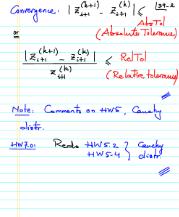 Convergence: | z_{i+1}^{(k+1)} - z_{i+1}^{(k)} | ≤
139-2
AbsTol
(Absolute Tolerance)
or
| z_{i+1}^{(k+1)} - z_{i+1}^{(k)} | / z_{i+1}^{(k)} ≤ RelTol
(Relative tolerance)
Note: Comments on HW5, Cauchy
distr.
HW7.0: Redo HW5.2 } Cauchy
HW5.4 } distr